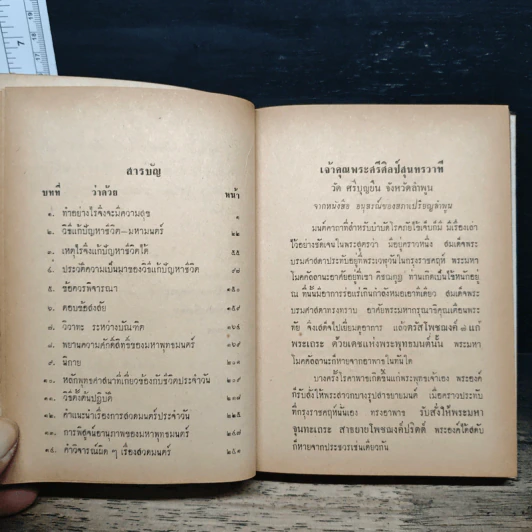 สารบัญ
บทที่ ว่าด้วย หน้า
๑. ทำอย่างไรจึงจะมีความสุข ๑
๒. วิธีแก้ปัญหาชีวิต-มหามนตร์ ๒๒
๓. เหตุไรจึงแก้ปัญหาชีวิตได้ ๕๕
๔. ประวัติความเป็นมาของวิธีแก้ปัญหาชีวิต ๙๘
๕. ข้อควรพิจารณา ๑๕๐
๖. ตอบข้อสงสัย
๗. วิวาทะ ระหว่างบัณฑิต
๘. พยานความศักดิ์สิทธิ์ของมหาพุทธมนตร์
๙. นิกาย
๑๐. หลักพุทธศาสนาที่เกี่ยวข้องกับชีวิตประจำวัน ๒๐๙
๑๑. วิธีตั้งต้นปฏิบัติ
๑๒. คำแนะนำเรื่องการสวดมนตร์ประจำวัน ๒๒๕
๑๓. การพิสูจน์อานุภาพของมหาพุทธมนตร์
๑๔. คำวิจารณ์ผิด ๆ เรื่องสวดมนตร์ ๒๕๑
เจ้าคุณพระศรีศิลป์สุนทรวาที
วัด ศรีบุญยืน จังหวัดลำพูน
จากหนังสือ อนุสรณ์ของสภาเปรียญลำพูน
มนต์คาถาที่สำหรับบำบัดโรคภัยไข้เจ็บก็มี มีเรื่องเล่า
ไว้อย่างชัดเจนในพระสูตรว่า มีอยู่คราวหนึ่ง สมเด็จพระ
บรมศาสดาประทับอยู่ที่พระเวฬุวันในกรุงราชคฤห์ พระมหา
โมคคัลลานะอาศัยอยู่ที่เขา คิชฌกูฏ ท่านเกิดเป็นไข้หนักอยู่
ณ ที่นั้นมีอาการร่อแร่เกินกำลังหมอเอาทีเดียว สมเด็จพระ
บรมศาสดาทรงทราบ อาศัยพระมหากรุณาธิคุณเตือนพระ
ทัย จึงเสด็จไปเยี่ยมดูอาการ แล้วตรัสโพชฌงค์ ๗ แก่
พระเถระ ด้วยเดชแห่งพระพุทธมนต์นั้น พระมหา
โมคคัลลานะก็หายจากอาพาธในทันใด
บางครั้งโรคาพาธเกิดขึ้นแก่พระพุทธเจ้าเอง พระองค์
ก็รับสั่งให้พระสาวกบางรูปสาธยายมนต์ เมื่อคราวประทับ
ที่กรุงราชคฤห์นั่นเอง ทรงอาพาธ รับสั่งให้พระมหา
จุนทะเถระ สาธยายโพชฌงค์ปริตต์ พระองค์ได้สดับ
ก็หายจากประชวรเช่นเดียวกัน